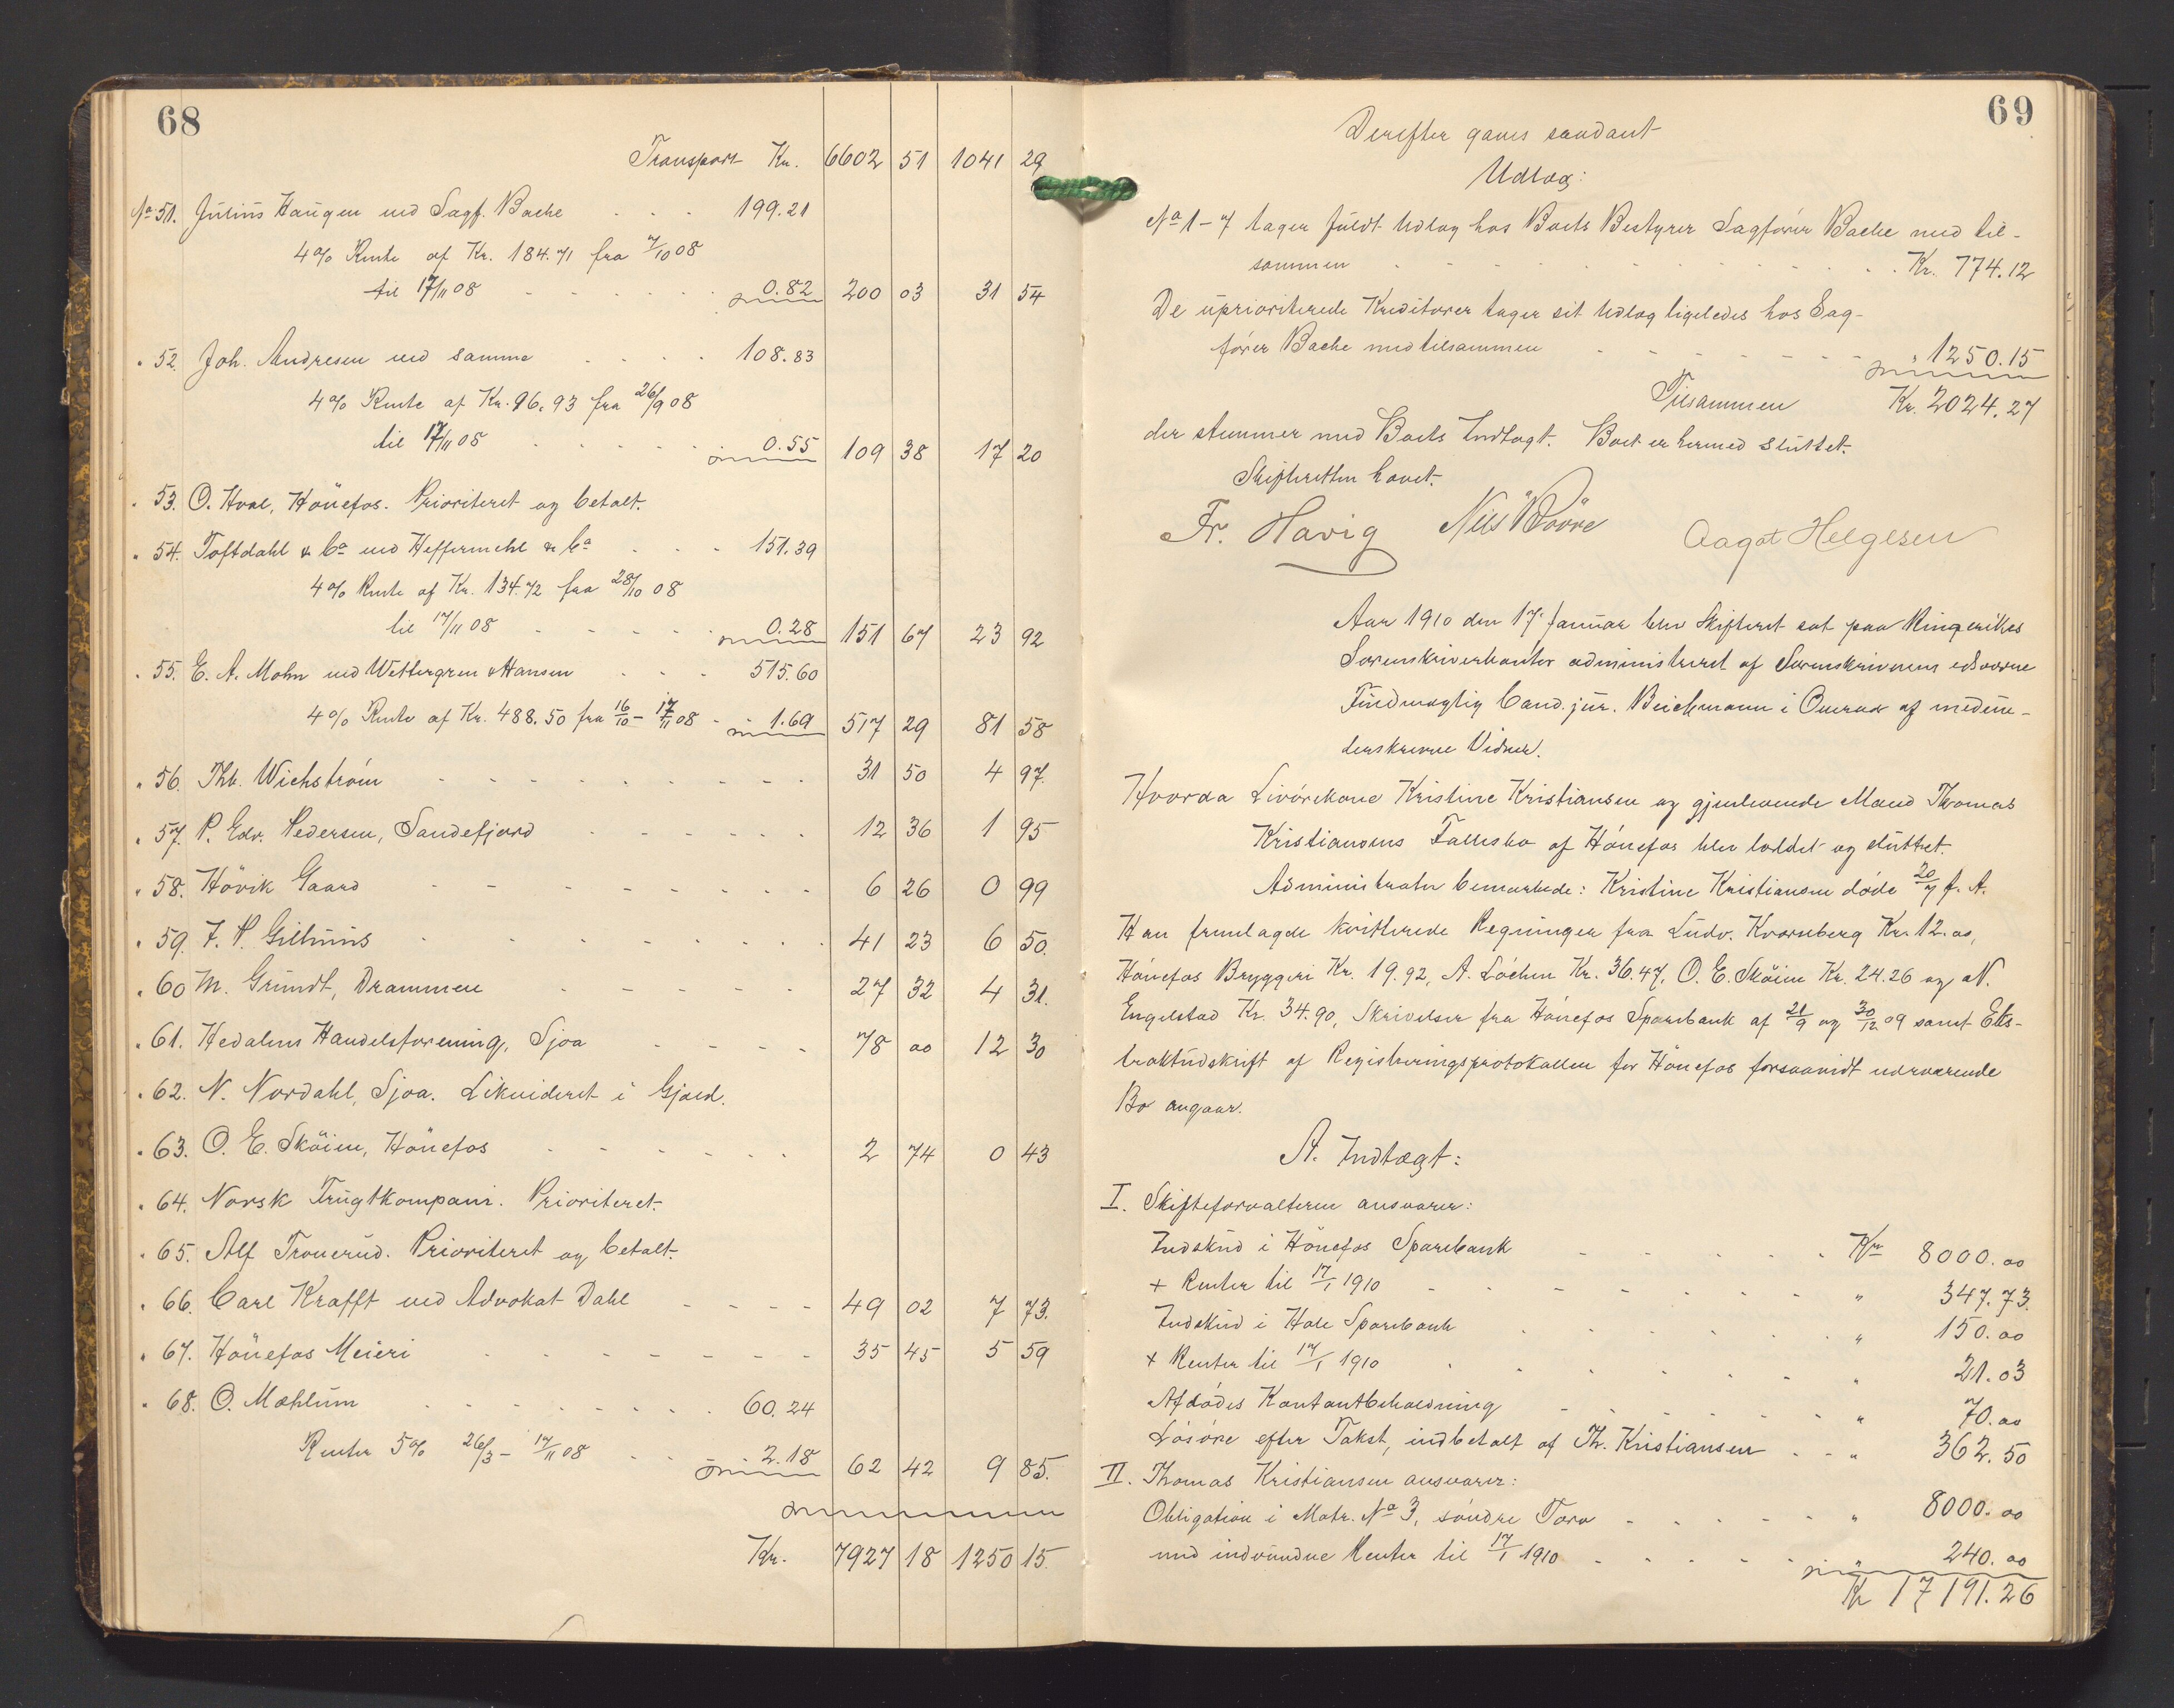 68
Transport Kr. 6602 51 1041 29
No 51. Julius Haugen ved Sagf. Bache . . . 199.21
4% Rente af Kr. 184.71 fra 7/10 08
til 17/11 08 - - - - - 0.82 200 03 31 54
" 52. Joh. Andresen ved samme . . . . 108.83
4% Rente af Kr. 96.93 fra 26/9 08
til 17/11 08 - - - - - 0.55 109 38 17 20
" 53. O. Hval, Hönefos. Prioriteret og betalt.
" 54. Toftdahl & Co ved Heffermehl & Co . . . 151.39
4% Rente af Kr. 134.72 fra 28/10 08
til 17/11 08 - - - - - 0.28 151 67 23 92
" 55. E. A. Mohn ved Wettergren & Hansen . . . 515.60
4% Rente af Kr. 488.50 fra 16/10 - 17/11 08 - - 1.69 517 29 81 58
" 56. Thb. Wichström - - - - - - - - 31 50 4 97.
" 57. P. Edv. Pedersen, Sandefjord - - - - - - 12 36 1 95
" 58. Hövik Gaard - - - - - - - - 6 26 0 99
" 59. J. P. Gilhuus - - - - - - - - 41 23 6 50.
" 60 M. Grundt, Drammen - - - - - - 27 32 4 31.
" 61. Hedalens Handelsforening, Sjoa - - - - 78 00 12 30
" 62. N. Nordahl, Sjoa. Likvideret i Gjæld.
" 63. O. E. Sköien, Hönefos - - - - - - 2 74 0 43
" 64. Norsk Frugtkompani. Prioriteret.
" 65. Alf Tronerud. Prioriteret og betalt.
" 66. Carl Krafft ved Advokat Dahl - - - - 49 02 7 73.
" 67. Hönefos Meieri - - - - - - - 35 45 5 59
" 68. O. Mæhlum - - - - - - - 60.24
Renter 5% 26/3 - 17/11 08 - - 2.18 62 42 9 85.
Kr. 7927 18 1250 15.
69
Derefter gaves saadant
Udlæg:
No 1-7 tager fuldt Udlæg hos Boets Bestyrer Sagförer Bache med til-
sammen - - - - - - - - - Kr. 774.12
De uprioriterede Kreditorer tager sit Udlæg ligeledes hos Sag-
förer Bache med tilsammen - - - - - - " 1250.15
Tilsammen Kr. 2024.27
der stemmer med Boets Indtægt. Boet er hermed sluttet.
Skifteretten hævet.
Fr. Havig Nils Aagot Helgesen
Aar 1910 den 17. Januar blev Skifteret sat paa Ringerikes
Sorenskriverkontor administreret af Sorenskriverens edsvorne
Fuldmægtig Cand. jur. Beichmann i Overvær af medun-
derskrevne Vidner.
Hvorda Livörekone Kristine Kristiansen og gjenlevende Mand Thomas
Kristiansens Fællesbo af Hönefos blev loddet og sluttet.
Administrator bemærkede: Kristine Kristiansen döde 20/7 f. A.
Han fremlagde kvitterede Regninger fra Ludv. Kvernberg Kr. 12.00,
Hönefos Bryggeri Kr. 19.92, A. Löchen Kr. 36.47, O. E. Sköien Kr. 24.26 og N.
Engelstad Kr. 34.90, Skrivelser fra Hönefos Sparebank af 21/9 og 30/12 09 samt Eks-
traktudskrift af Registreringsprotokollen for Hönefos forsaavidt nærværende
Bo angaar.
A. Indtægt:
I. Skifteforvalteren ansvarer:
Indskud i Hönefos Sparebank - - - - - Kr 8000.00
+ Renter til 17/1 1910 - - - - - - - " 347.73.
Indskud i Hole Sparebank - - - - - - " 150.00
+ Renter til 17/1 1910 - - - - - - - " 21.03
Afdödes Kontantbeholdning - - - - - - " 70.00
Lösöre efter Takst, indbetalt af Th. Kristiansen - - " 362.50
II. Thomas Kristiansen ansvarer:
Obligation i Matr. No 3, söndre Torv - - - - - " 8000.00
med indvundne Renter til 17/1 1910 - - - - - " 240.00
Kr 17191.26